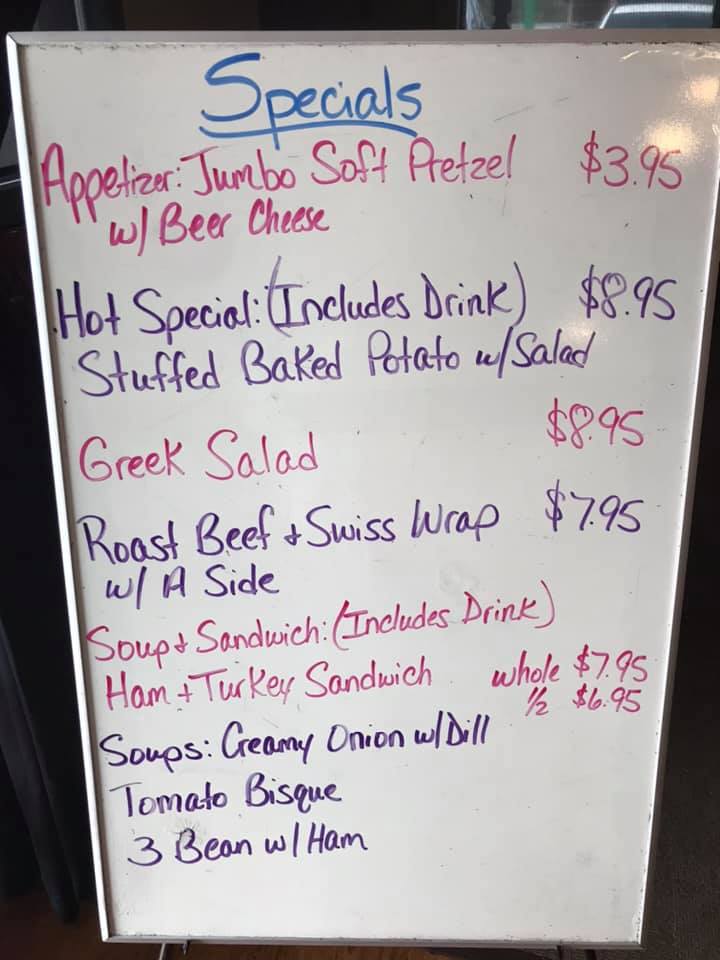 Specials
Appetizer: Jumbo Soft Pretzel $3.95
w/ Beer Cheese
Hot Special: (Includes Drink) $8.95
Stuffed Baked Potato w/ Salad
Greek Salad $8.95
Roast Beef + Swiss Wrap $7.95
w/ A Side
Soup + Sandwich: (Includes Drink)
Ham + Turkey Sandwich whole $7.95
1/2 $6.95
Soups: Creamy Onion w/ Dill
Tomato Bisque
3 Bean w/ Ham